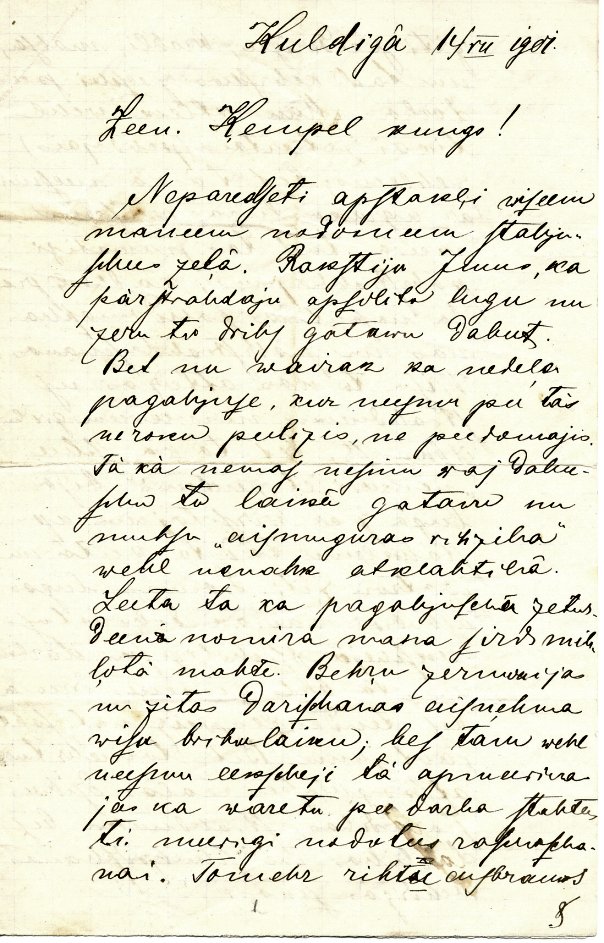 Kuldigâ 14/VII 1901.
Zeen. Ķempel kungs!
Neparedseti apstakļi wiseem
maneem nodomeem stahju-
schees zeļâ. Rakstiju Jums, ka
pârstrahdaju apsolito lugu un
zeru to drihs gatawu dabut.
Bet nu wairak ka nedeļa
pagahjuse, kur neesmu pee tâs
ne roku peelizis, ne peedomajis.
Tâ kâ nemas nesinu waj dabu-
schu to laikâ gatawu un
muhsu „aismuguras rihziba"
wehl nenahk atklahtibâ.
Leeta ta ka pagahjuschâ zetur-
deenâ nomira mana sirds mih-
ļotâ mahte. Behru zermonijas
un zitas darischanas aisnehma
wisu brihwlaiku; bes tam wehl
neesmu eekscheji tâ apmeerina-
jees ka waretu pee darba stahtees
ti meerigi nodotees
Tomehr rihtâ aisbraukts